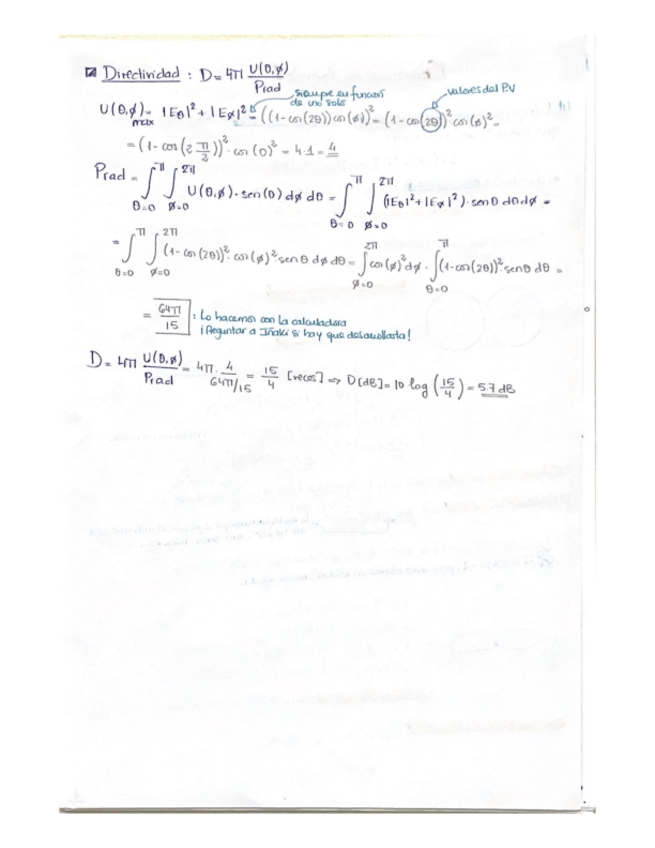 Directividad : D = 4π U(θ,ø) / Prad
siempre en función de uno solo
valores del P.V
U(θ,ø)max = |Eθ|² + |Eø|² = ((1-cos(2θ)) cos(ø))² = (1-cos(2θ))² cos(ø)² =
= (1-cos(2 π/2))² · cos(0)² = 4·1 = 4
Prad = ∫θ=0^π ∫ø=0^2π U(θ,ø) · sen(θ) dø dθ = ∫θ=0^π ∫ø=0^2π (|Eθ|² + |Eø|²) · senθ dθ dø =
= ∫θ=0^π ∫ø=0^2π (1-cos(2θ))² · cos(ø)² senθ dø dθ = ∫ø=0^2π cos(ø)² dø · ∫θ=0^π (1-cos(2θ))² senθ dθ =
= 64π/15 : Lo hacemos con la calculadora
¡Preguntar a Iñaki si hay que desarrollarla!
D = 4π U(θ,ø) / Prad = 4π · 4 / 64π/15 = 15/4 [veces] => D[dB] = 10 log (15/4) = 5.7 dB